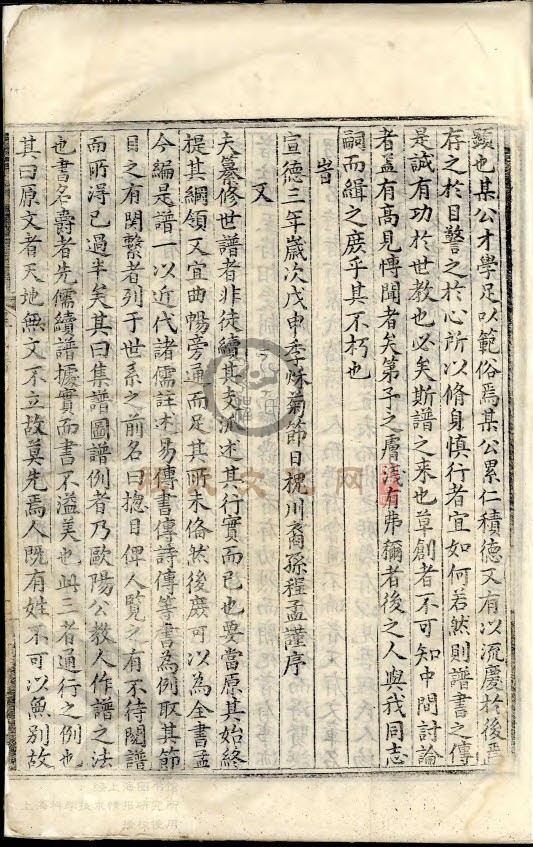 顯也某公才學足以範俗焉某公累仁積德又有以流慶於後焉
存之於目警之於心所以脩身慎行者宜如何若然則譜書之傳
是誠有功於世教也必矣斯譜之来也草創者不可知中間討論
者盖有高見慱聞者矣第子之膚淺有弗彌者後之人與我同志
嗣而緝之庻乎其不朽也
旹
宣德三年歲次戊申季秌菊節日槐川裔孫程孟謹序
又
夫纂修世譜者非徒續其支派述其行實而已也要當原其始終
提其綱領又宜曲暢旁通而足其所未俻然後庻可以為全書孟
今編是譜一以近代諸儒註述易傳書傳詩傳等書為例取其節
目之有関繫者列于世系之前名曰揔目俾人覧之有不待閱譜
而所淂已過半矣其曰集譜圖譜例者乃歐陽公教人作譜之法
也書名爵者先儒續譜據實而書不溢美也此三者通行之例也
其曰原文者天地無文不立故莫先焉人既有姓不可以無别故
上海科学技术情报研究所